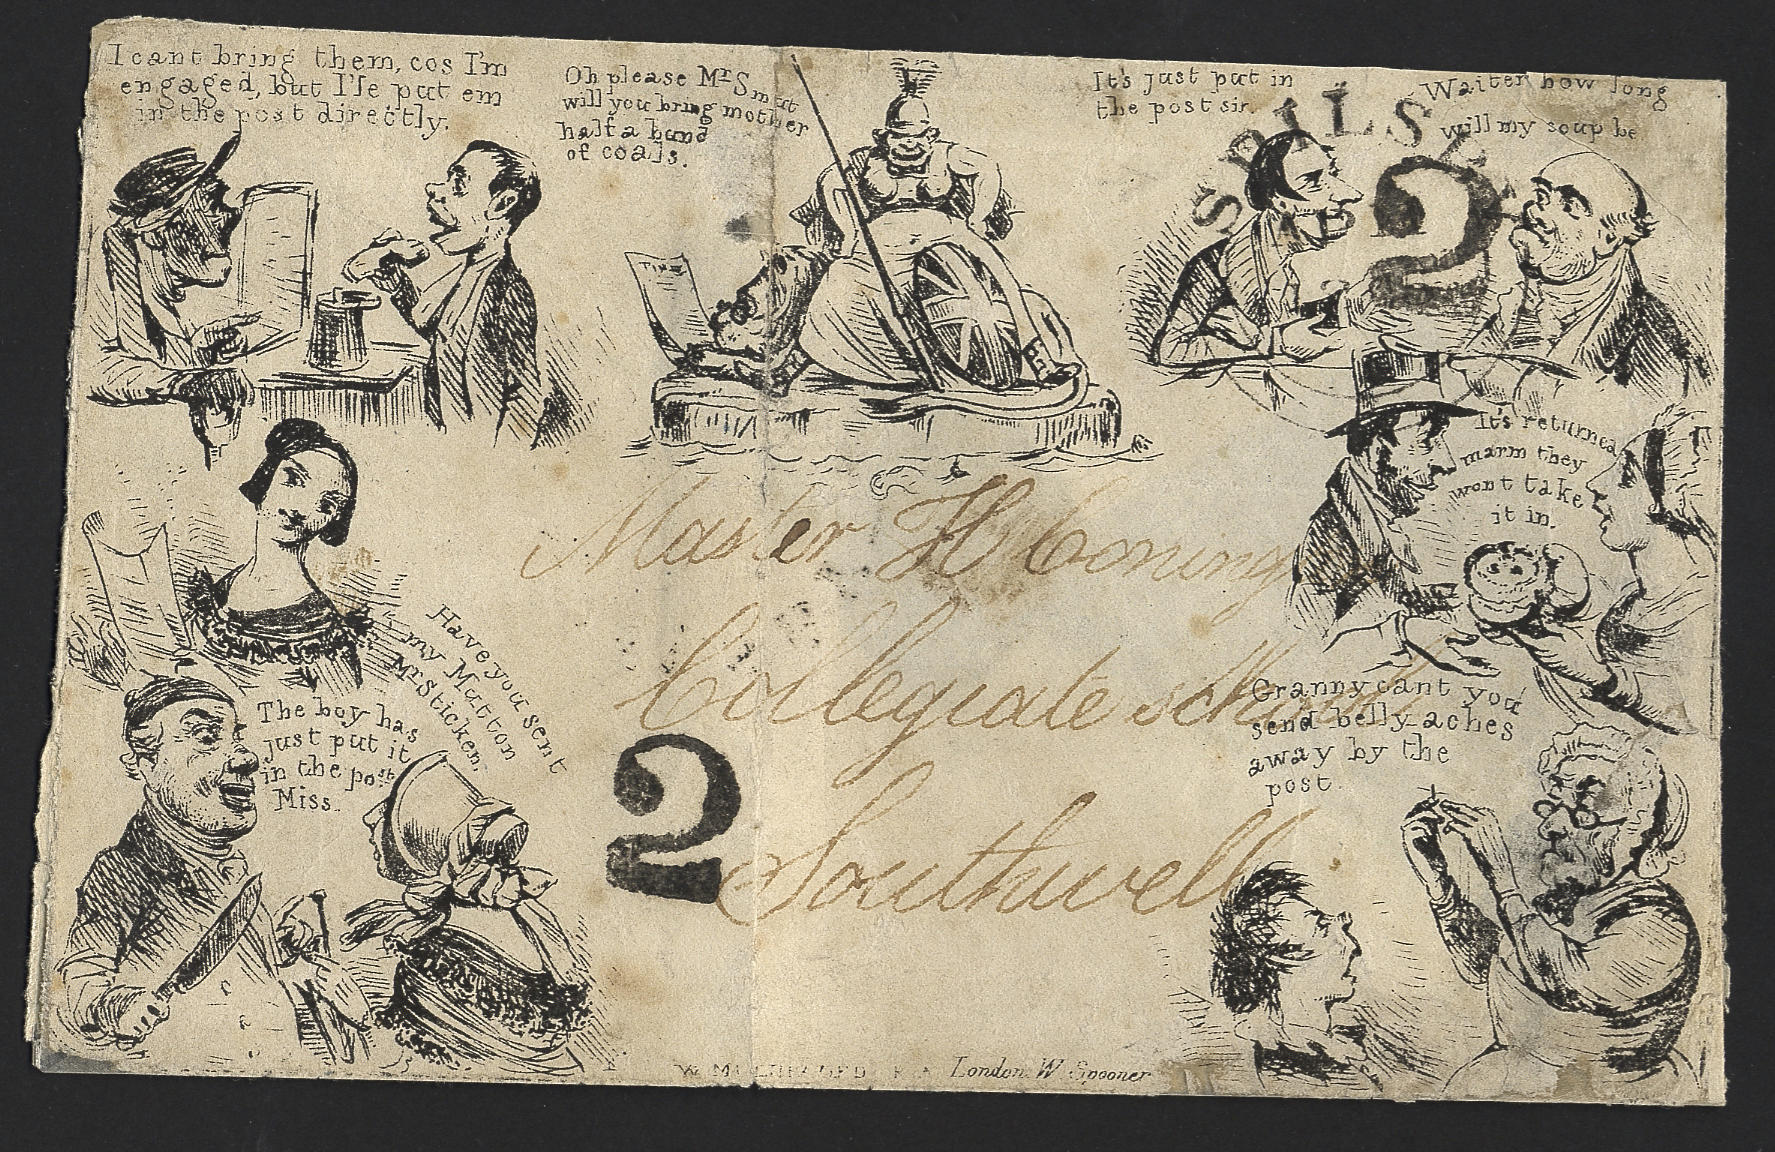 I cant bring them, cos I'm
engaged, but I'le put em
in the post directly.
Oh please Mr Smut
will you bring mother
half a hund
of coals.
TIMES
It's just put in
the post sir.
Waiter how long
will my soup be
SPILSBY
2
It's returned
marm they
wont take
it in.
Master H Coning
Collegiate School
Southwell
2
Have you sent
my Mutton
Mr Sticken.
The boy has
just put it
in the post
Miss.
Granny cant you
send belly-aches
away by the
post.
W. MULREADY R A London. W Spooner